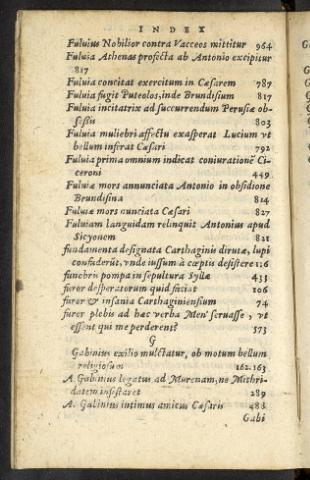 INDEX
Fuluius Nobilior contra Vacceos mittitur 964
Fuluia Athenas profecta ab Antonio excipitur
817
Fuluia concitat exercitum in Cæsarem 787
Fuluia fugit Puteolos, inde Brundisium 817
Fuluia incitatrix ad succurrendum Perusiæ ob-
sessis 803
Fuluia muliebri affectu exasperat Lucium vt
bellum inferat Cæsari 792
Fuluia prima omnium indicat coniurationē Ci-
ceroni 449
Fuluiæ mors annunciata Antonio in obsidione
Brundisina 814
Fuluiæ mors nunciata Cæsari 827
Fuluiam languidam relinquit Antonius apud
Sicyonem 821
fundamenta designata Carthaginis dirutæ, lupi
confuderūt, vnde iussum à cœptis desistere 126
funebris pompa in sepultura Syllæ 433
furor desperatorum quid faciat 106
furor & insania Carthaginiensium 74
furor plebis ad hæc verba Men' seruasse, vt
essent qui me perderent? 573
G
Gabinius exilio mulctatur, ob motum bellum
religiosum 162.163
A. Gabinius legatus ad Murenam, ne Mithri-
datem infestaret 289
A. Gabinius intimus amicus Cæsaris 488
Gabi